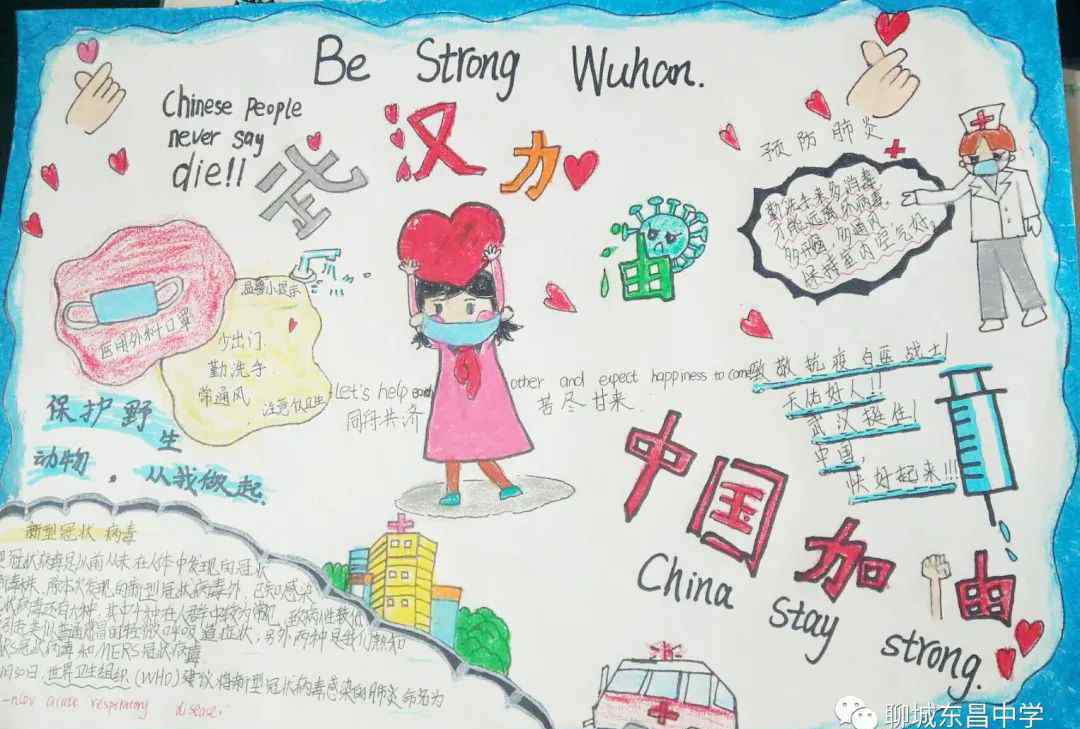 Be Strong Wuhan.
Chinese people
never say
die!!
武汉加油
预防肺炎
勤洗手来多消毒
才能远离外病毒,
多开窗,多通风
保持室内空气好。
医用外科口罩
温馨小提示
少出门.
勤洗手
常通风
注意饮卫生
Let's help each other and expect happiness to come
同舟共济 苦尽甘来.
致敬抗疫白医战士!
天佑好人!!
武汉挺住!
中国,
快好起来!!!
保护野生
动物,从我做起.
中国加油
China stay strong.
新型冠状病毒
冠状病毒是以前从未在人体中发现的冠状
毒株。除本次发现的新型冠状病毒外,已知感染
状病毒还有六种,其中4种在人群中较为常见,致病性较低
引起类似普通感冒的轻微呼吸道症状,另外两种是我们熟知
RS冠状病毒和MERS冠状病毒
月30日,世界卫生组织(WHO)建议将新型冠状病毒感染的肺炎命名为
acute respiratory disease.
聊城东昌中学